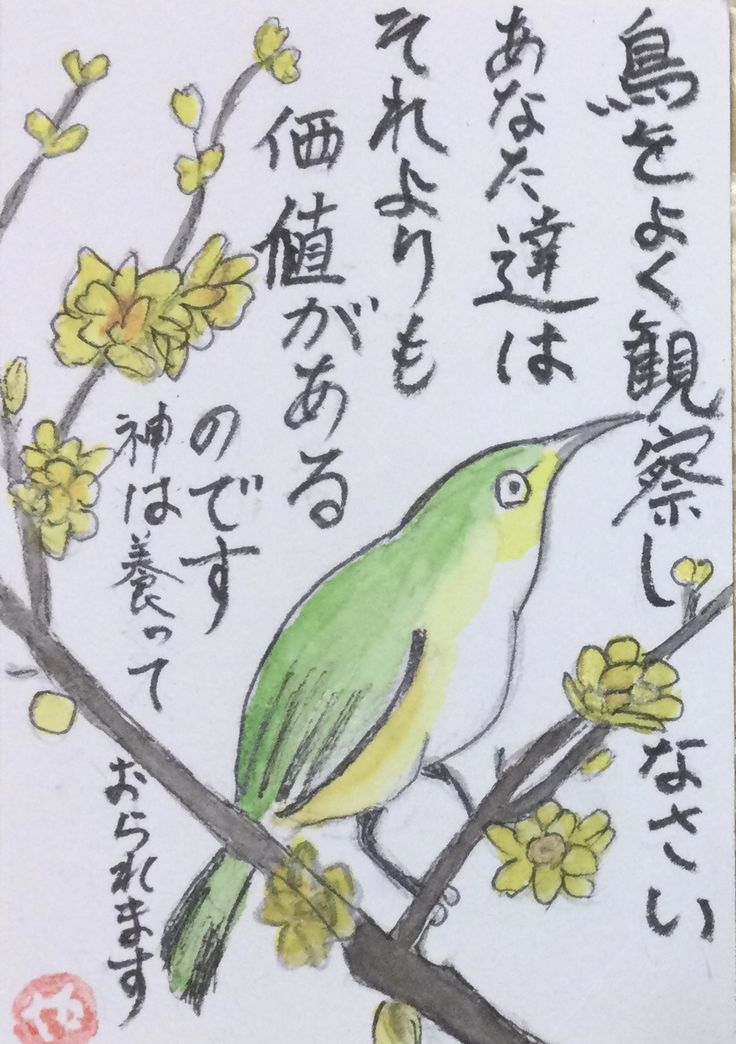 鳥をよく観察しなさい
あなた達は
それよりも
価値がある
のです
神は養って
おられます
や